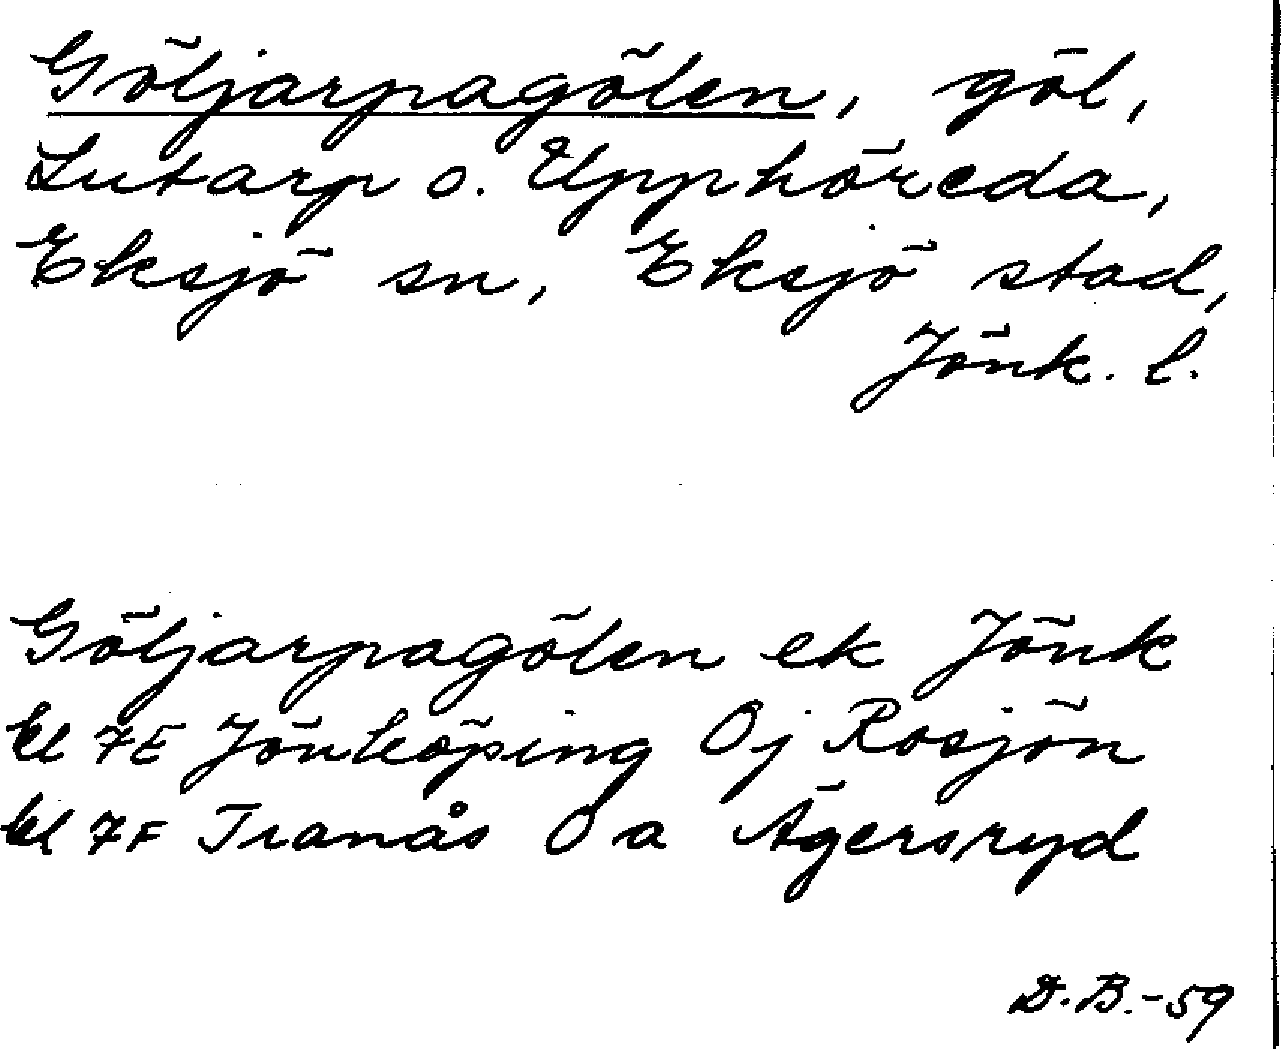 Göljarpagölen, göl,
Lutarp o. Upphöreda,
Eksjö sn, Eksjö stad,
Jönk. l.
Göljarpagölen ek Jönk
bl 7E Jönköping Öj Rosjön
bl 7F Tranås Ö a Ägersryd
D.B.-59